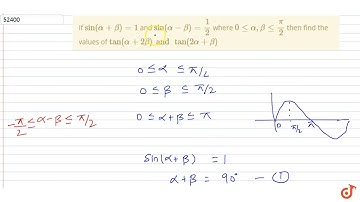 52400
If sin(α + β) = 1 and sin(α − β) = 1/2 where 0 ≤ α, β ≤ π/2 then find the
values of tan(α + 2β) and tan(2α + β)
0 ≤ α ≤ π/2
0 ≤ β ≤ π/2
-π/2 ≤ α-β ≤ π/2
0 ≤ α+β ≤ π
0 π/2 π
sin(α+β) = 1
α+β = 90° — ①